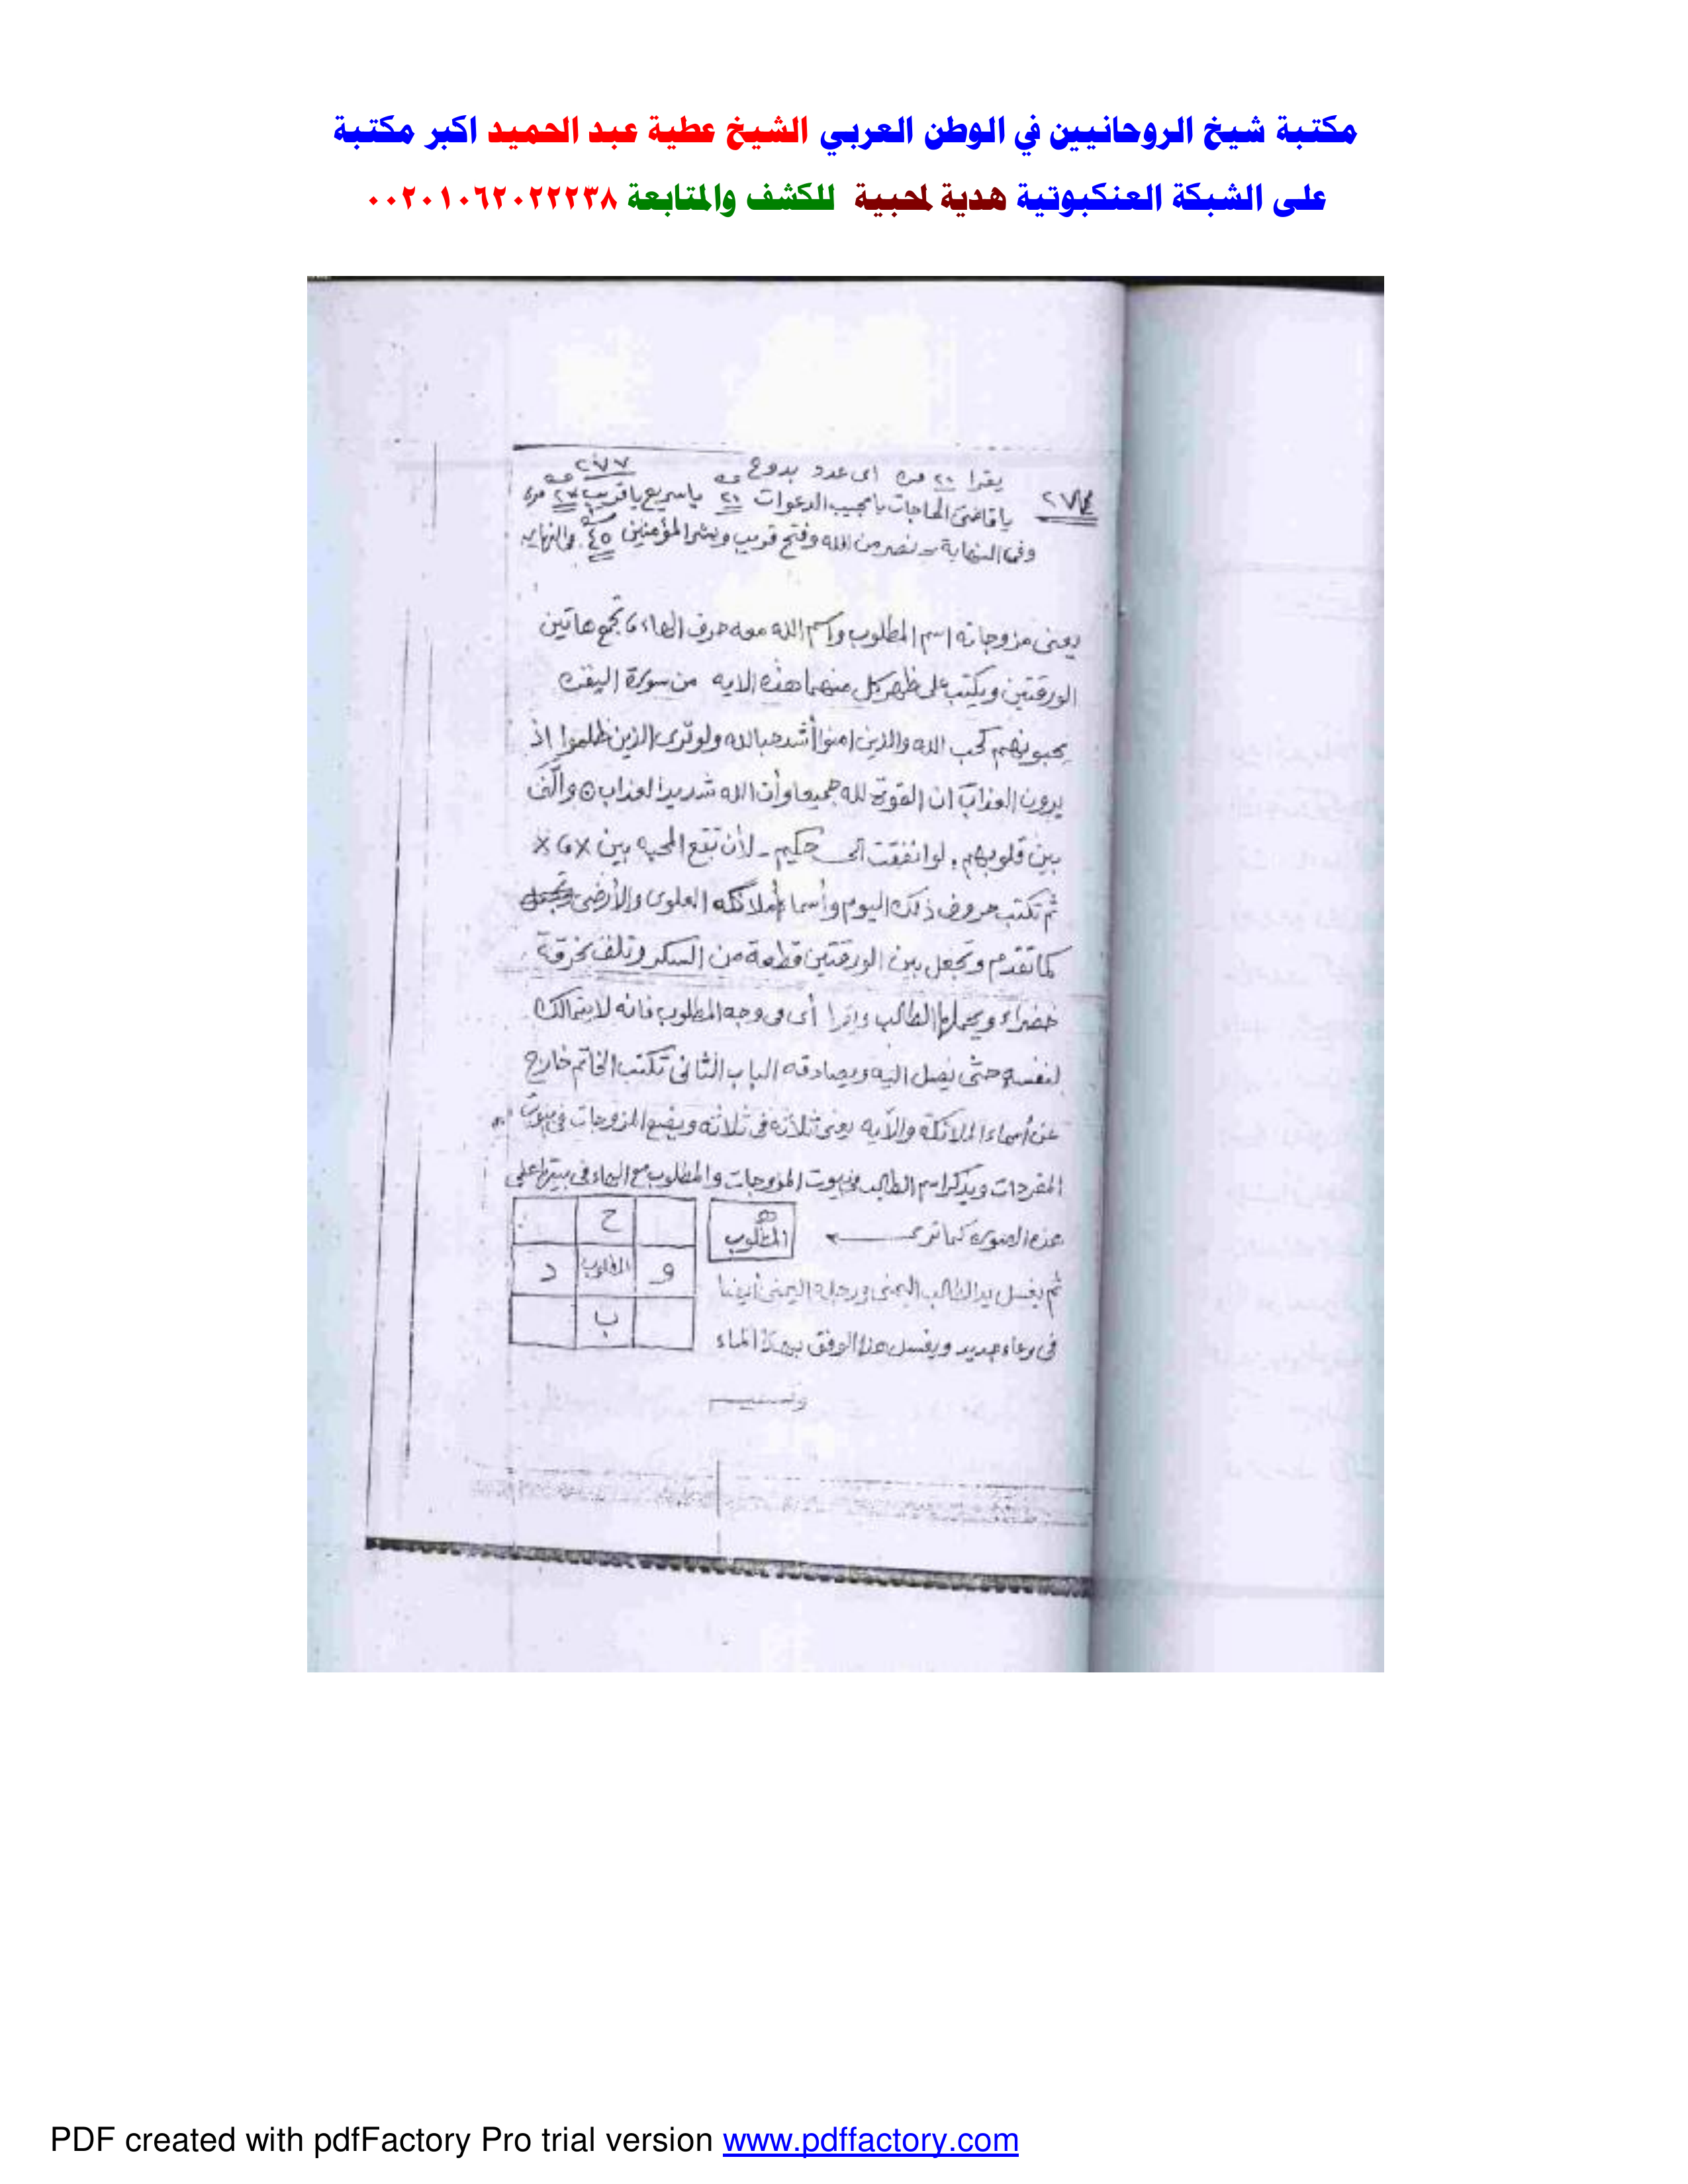 مكتبة شيخ الروحانيين في الوطن العربي الشيخ عطية عبد الحميد اكبر مكتبة
على الشبكة العنكبوتية هدية لمحبية للكشف والمتابعة ٠٠٢٠١٠٦٢٠٢٢٢٣٨
يقرا ٢٠ مره اى عدد بدوح
ياقاضى الحاجات يا مجيب الدعوات ٢٠ ياسريع ياقريب مره
وفى النهاية نصر من الله وفتح قريب وبشر المؤمنين ٤٥
يعنى مزوجاته اسم المطلوب واسم الله معه حرف الهاء تجمع هاتين
الورقتين ويكتب على ظهر كل منهما هذه الايه من سورة البقره
يحبونهم كحب الله والذين امنوا أشد حبا لله ولو ترى الذين ظلموا اذ
يرون العذاب ان القوة لله جميعا وأن الله شديد العذاب وألّف
بين قلوبهم . لو انفقت الى حكيم - لأن تقع المحبه بين x x
ثم تكتب حروف ذلك اليوم وأسماء أملاكه العلوى والأرضى
كما تقدم وتجعل بين الورقتين قطعة من السكر وتلف بخرقة
خضراء ويحملها الطالب فى وجه المطلوب فانه لا يتمالك
لنفسه حتى يصل اليه ويصادقه الباب الثانى تكتب الخاتم خارج
عن أسماء الملائكة والآيه يعنى ثلاثه فى ثلاثه ويضع المزوجات فى بيوت
المفردات ويذكر اسم الطالب فى بيوت المزوجات والمطلوب مع الهاء فى بيتها على
هذه الصورة كما ترى
ه المطلوب
ح
و المطلوب د
ب
ثم يغسل يد الطالب اليمنى ورجله اليمنى أيضا
فى وعاء جديد ويغسل هذا الوفق بهذا الماء
PDF created with pdfFactory Pro trial version www.pdffactory.com